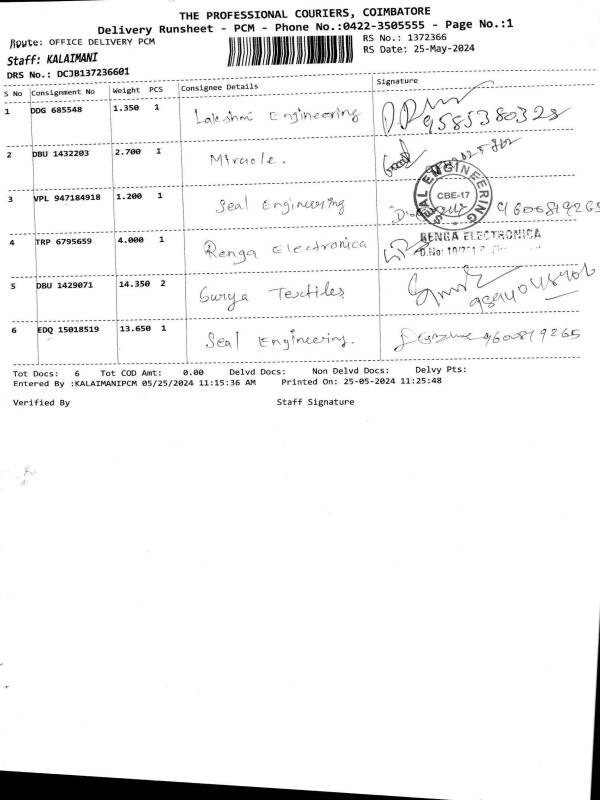 THE PROFESSIONAL COURIERS, COIMBATORE
Delivery Runsheet - PCM - Phone No.:0422-3505555 - Page No.:1
Route: OFFICE DELIVERY PCM
RS No.: 1372366
Staff: KALAIMANI
RS Date: 25-May-2024
DRS No.: DCJB137236601
S No Consignment No Weight PCS Consignee Details Signature
1 DDG 685548 1.350 1 Lakshmi Engineering 9585380328
2 DBU 1432203 2.700 1 Miracle.
3 VPL 947184918 1.200 1 Seal Engineering 9600819265
SEAL ENGINEERING CBE-17
4 TRP 6795659 4.000 1 Renga Electronica
RENGA ELECTRONICA
D.No:
5 DBU 1429071 14.350 2 Surya Textiles
6 EDQ 15018519 13.650 1 Seal Engineering. 9600819265
Tot Docs: 6 Tot COD Amt: 0.00 Delvd Docs: Non Delvd Docs: Delvy Pts:
Entered By :KALAIMANIPCM 05/25/2024 11:15:36 AM Printed On: 25-05-2024 11:25:48
Verified By Staff Signature